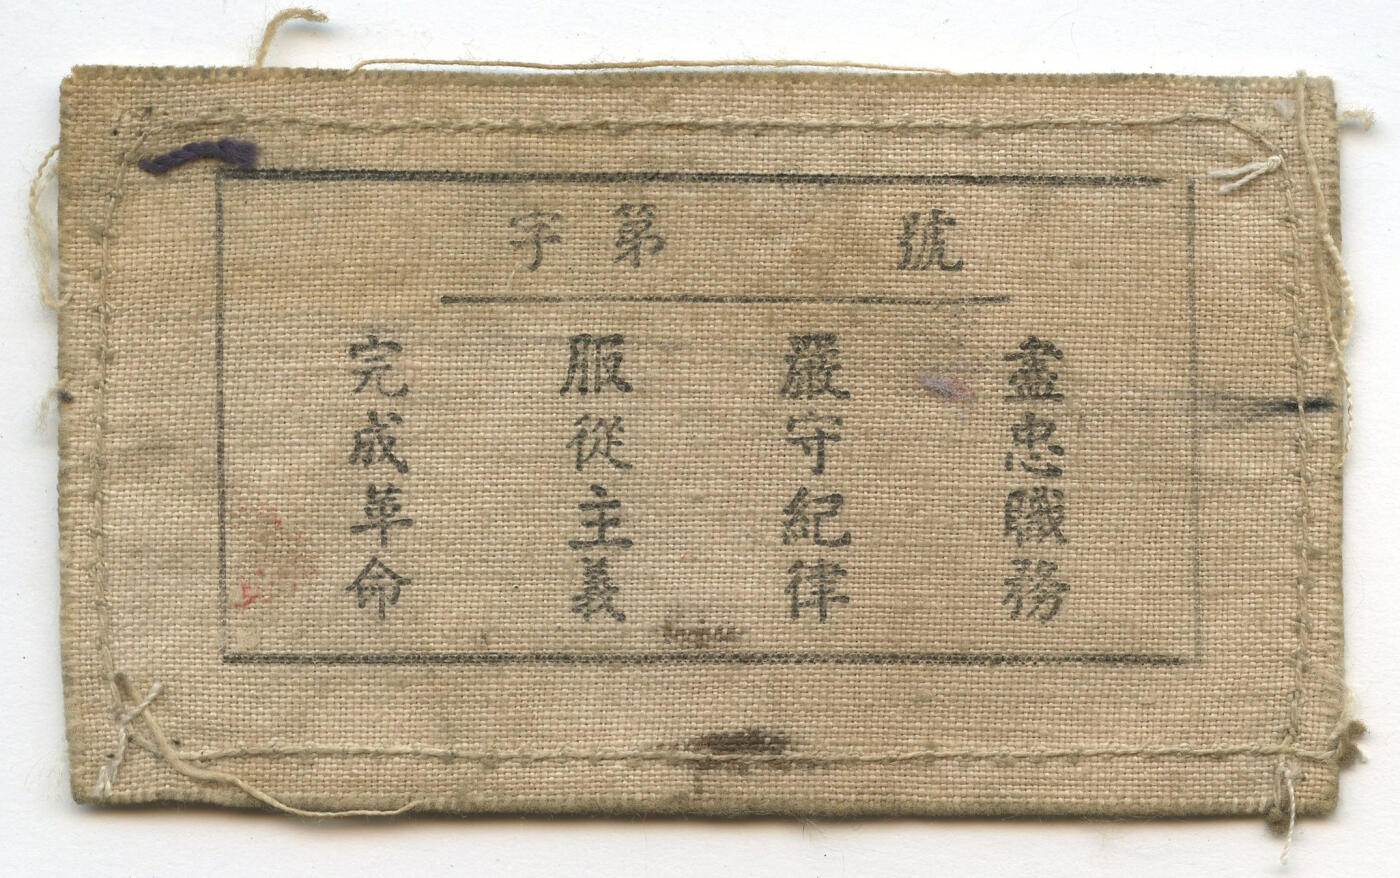 字第 號
盡忠職務
嚴守紀律
服從主義
完成革命